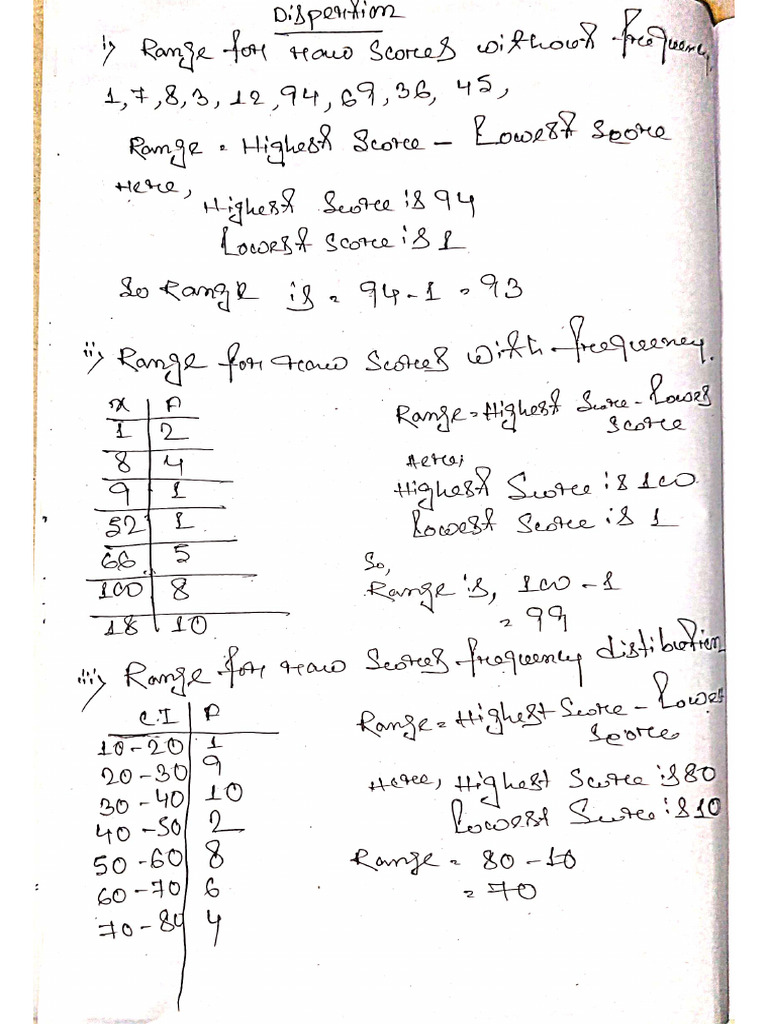 Dispertion
i) Range for raw scores without frequency
1, 7, 8, 3, 12, 94, 69, 36, 45,
Range = Highest Score - Lowest Score
Here,
Highest Score is 94
Lowest Score is 1
So Range is = 94 - 1 = 93
ii) Range for raw scores with frequency.
x | f
1 | 2
8 | 4
9 | 1
52 | 1
66 | 5
100 | 8
18 | 10
Range = Highest Score - Lowest
Score
Here,
Highest Score is 100
Lowest Score is 1
So,
Range is, 100 - 1
= 99
iii) Range for raw scores frequency distibution
C.I | f
10-20 | 1
20-30 | 9
30-40 | 10
40-50 | 2
50-60 | 8
60-70 | 6
70-80 | 4
Range = Highest Score - Lowest
Score
Here, Highest Score is 80
Lowest Score is 10
Range = 80 - 10
= 70